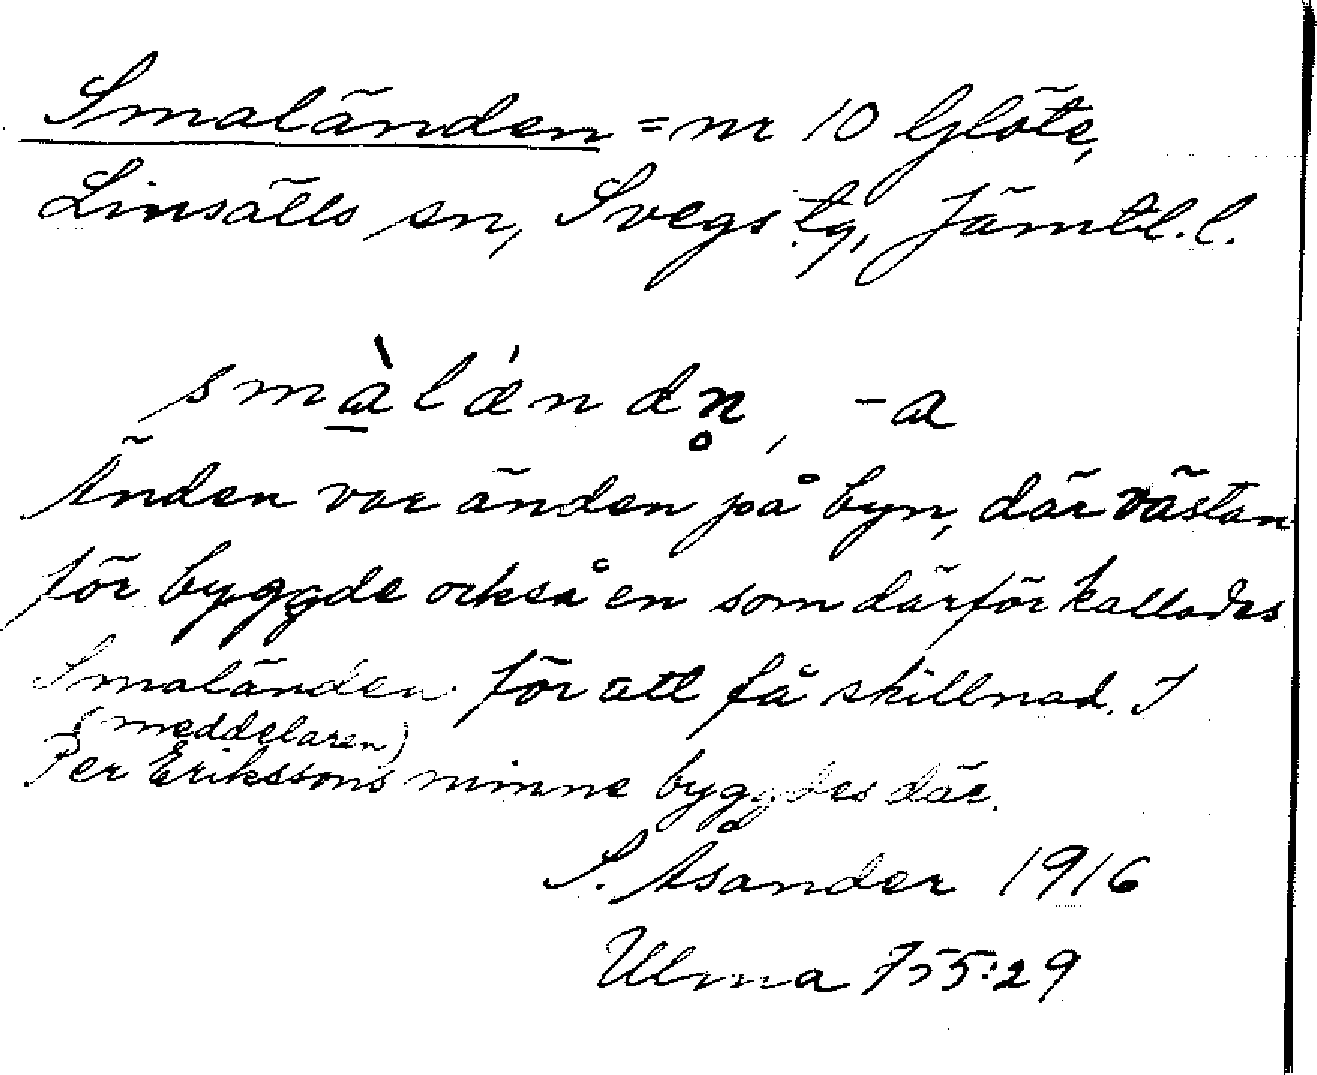 Smaländen = nr 10 Glöte,
Linsälls sn, Svegs tg, Jämtl. l.
smà̱lǽndn̥, -a
Änden var änden på byn, där västan
för byggde också en som därför kallades
Smaländen för att få skillnad. I
(meddelaren)
Per Erikssons minne byggdes där.
S. Åsander 1916
Ulma 755:29